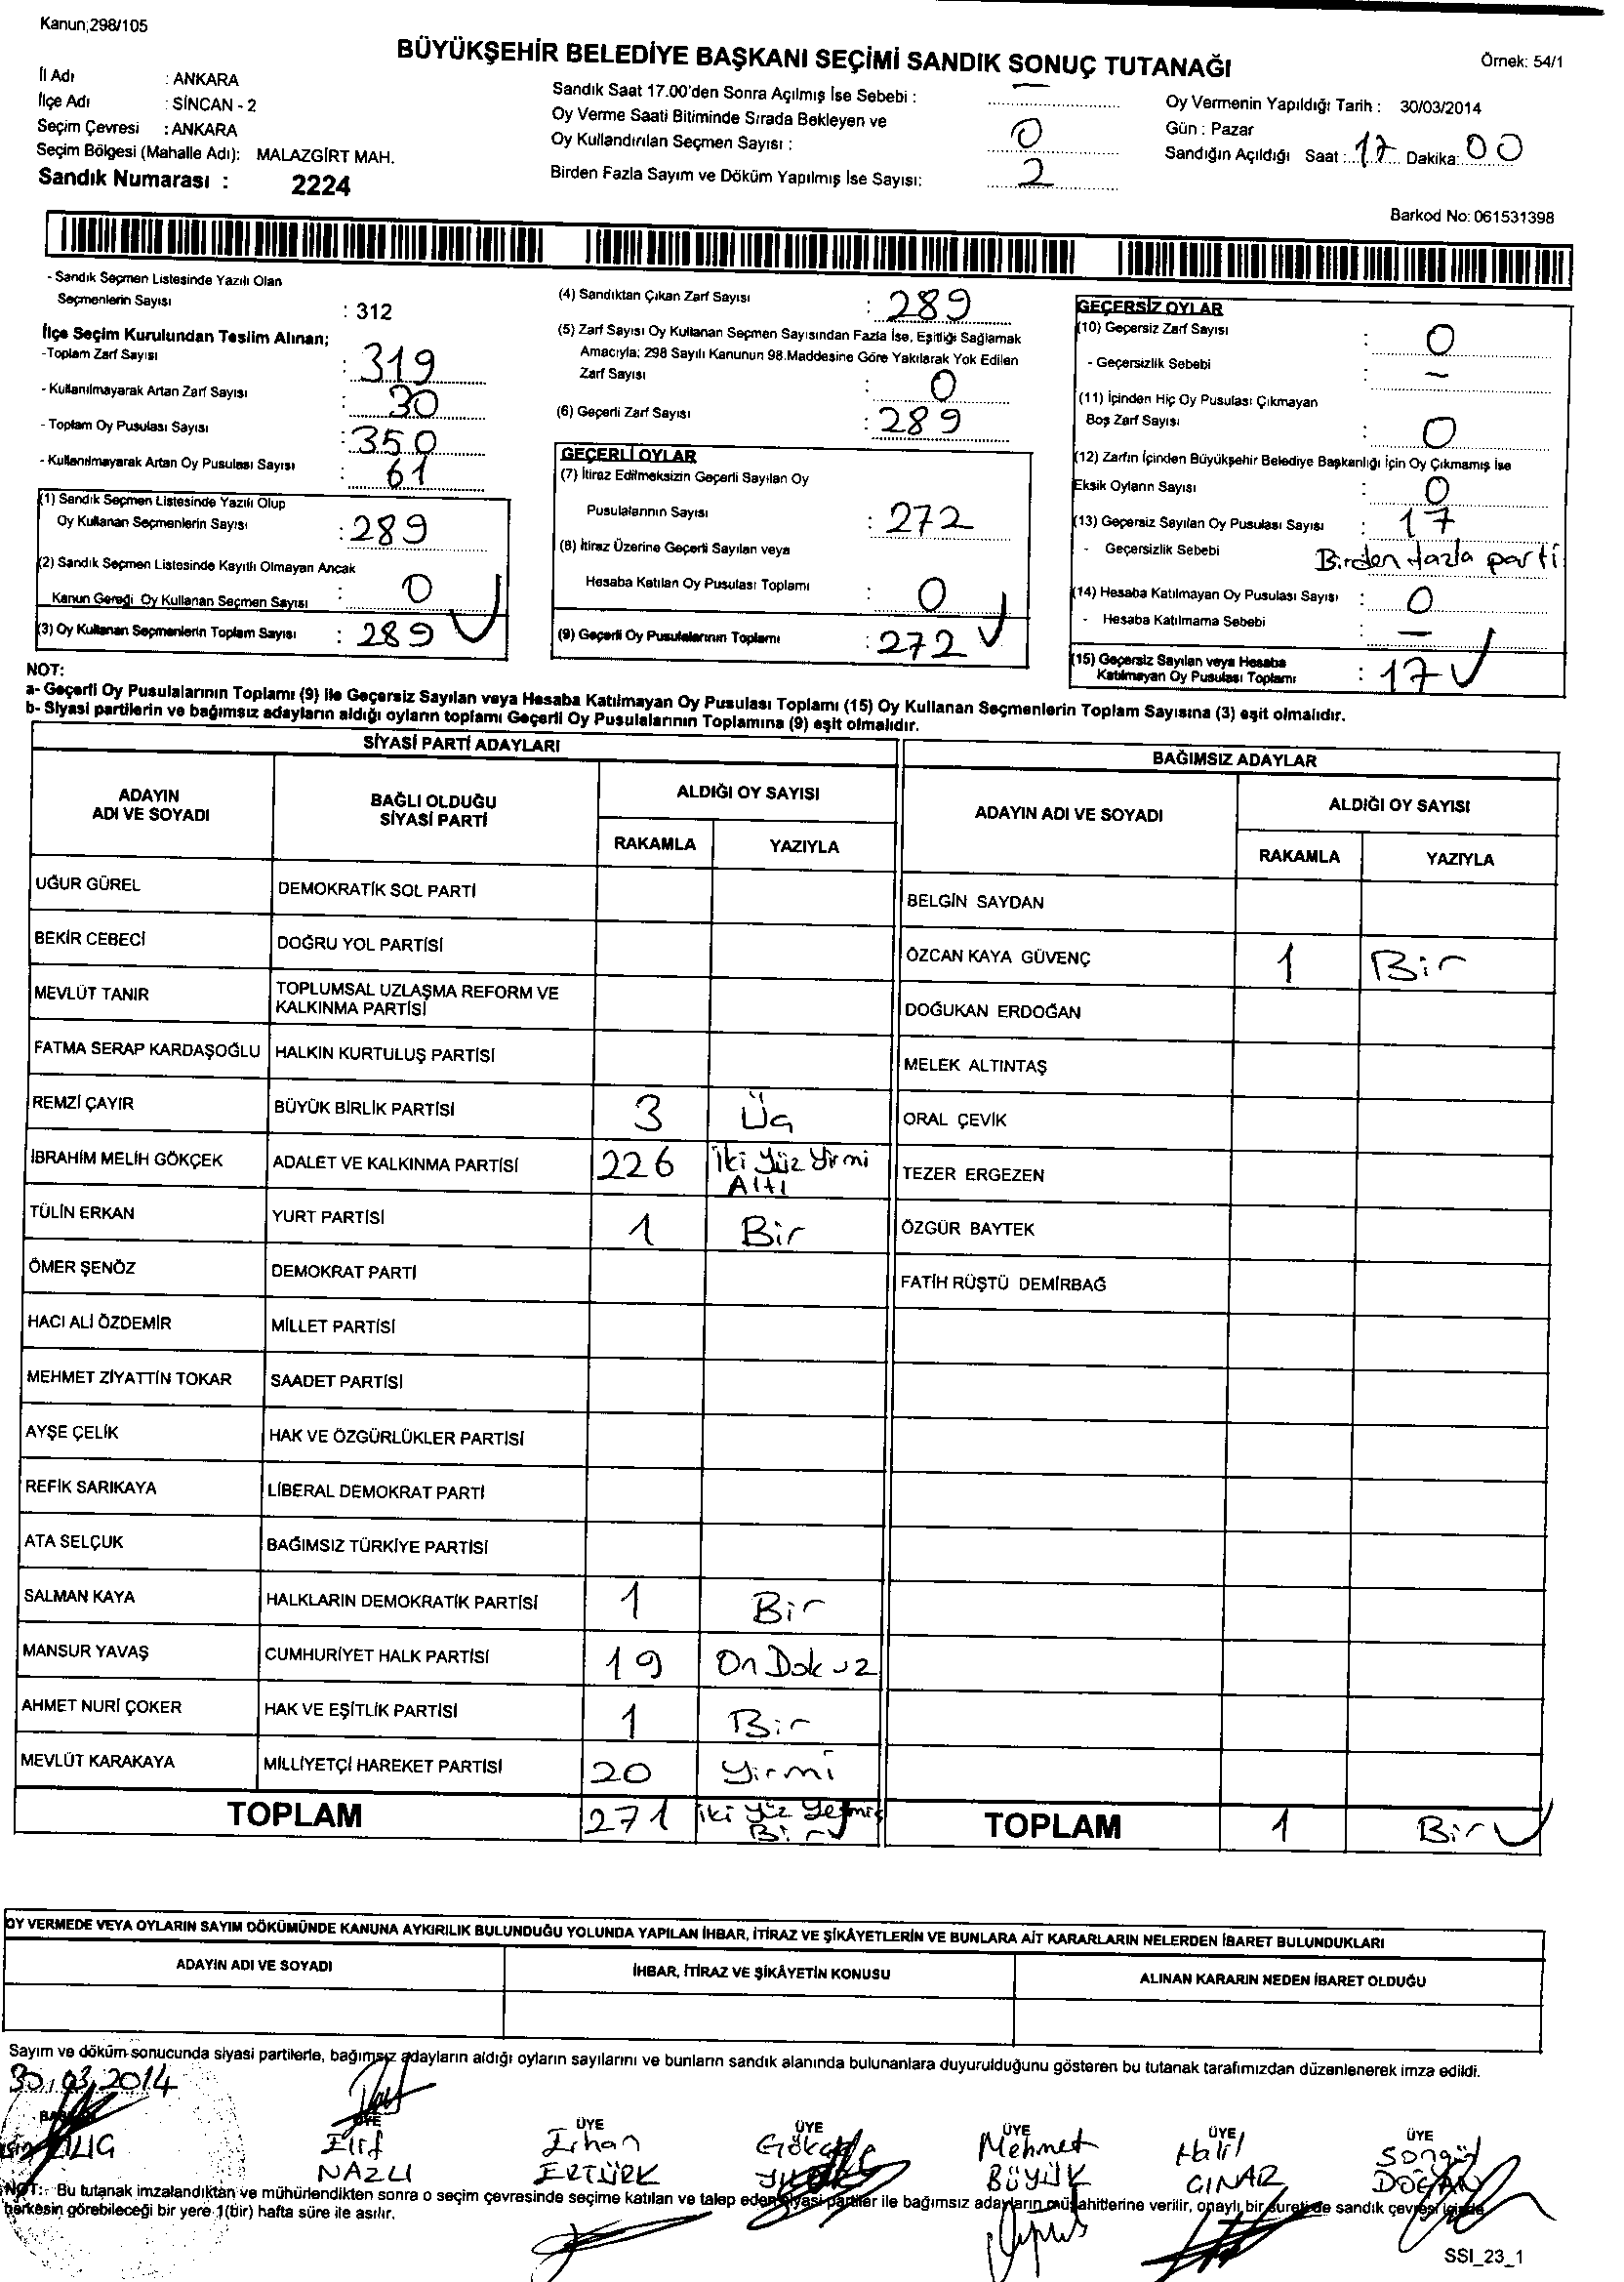 Kanun;298/105
BÜYÜKŞEHİR BELEDİYE BAŞKANI SEÇİMİ SANDIK SONUÇ TUTANAĞI
Örnek: 54/1
İl Adı : ANKARA
İlçe Adı : SİNCAN - 2
Seçim Çevresi : ANKARA
Seçim Bölgesi (Mahalle Adı): MALAZGİRT MAH.
Sandık Numarası : 2224
Sandık Saat 17.00'den Sonra Açılmış İse Sebebi : —
Oy Verme Saati Bitiminde Sırada Bekleyen ve
Oy Kullandırılan Seçmen Sayısı : 0
Birden Fazla Sayım ve Döküm Yapılmış İse Sayısı: 2
Oy Vermenin Yapıldığı Tarih : 30/03/2014
Gün : Pazar
Sandığın Açıldığı Saat : 17 Dakika: 00
Barkod No: 061531398
- Sandık Seçmen Listesinde Yazılı Olan
Seçmenlerin Sayısı : 312
İlçe Seçim Kurulundan Teslim Alınan;
-Toplam Zarf Sayısı : 319
- Kullanılmayarak Artan Zarf Sayısı : 30
- Toplam Oy Pusulası Sayısı : 350
- Kullanılmayarak Artan Oy Pusulası Sayısı : 61
(1) Sandık Seçmen Listesinde Yazılı Olup
Oy Kullanan Seçmenlerin Sayısı : 289
(2) Sandık Seçmen Listesinde Kayıtlı Olmayan Ancak
Kanun Gereği Oy Kullanan Seçmen Sayısı : 0
(3) Oy Kullanan Seçmenlerin Toplam Sayısı : 289
(4) Sandıktan Çıkan Zarf Sayısı : 289
(5) Zarf Sayısı Oy Kullanan Seçmen Sayısından Fazla İse, Eşitliği Sağlamak
Amacıyla; 298 Sayılı Kanunun 98.Maddesine Göre Yakılarak Yok Edilen
Zarf Sayısı : 0
(6) Geçerli Zarf Sayısı : 289
GEÇERLİ OYLAR
(7) İtiraz Edilmeksizin Geçerli Sayılan Oy
Pusulalarının Sayısı : 272
(8) İtiraz Üzerine Geçerli Sayılan veya
Hesaba Katılan Oy Pusulası Toplamı : 0
(9) Geçerli Oy Pusulalarının Toplamı : 272
GEÇERSİZ OYLAR
(10) Geçersiz Zarf Sayısı : 0
- Geçersizlik Sebebi : —
(11) İçinden Hiç Oy Pusulası Çıkmayan
Boş Zarf Sayısı : 0
(12) Zarfın İçinden Büyükşehir Belediye Başkanlığı İçin Oy Çıkmamış İse
Eksik Oyların Sayısı : 0
(13) Geçersiz Sayılan Oy Pusulası Sayısı : 17
- Geçersizlik Sebebi Birden fazla parti
(14) Hesaba Katılmayan Oy Pusulası Sayısı : 0
- Hesaba Katılmama Sebebi : —
(15) Geçersiz Sayılan veya Hesaba
Katılmayan Oy Pusulası Toplamı : 17
NOT:
a- Geçerli Oy Pusulalarının Toplamı (9) ile Geçersiz Sayılan veya Hesaba Katılmayan Oy Pusulası Toplamı (15) Oy Kullanan Seçmenlerin Toplam Sayısına (3) eşit olmalıdır.
b- Siyasi partilerin ve bağımsız adayların aldığı oyların toplamı Geçerli Oy Pusulalarının Toplamına (9) eşit olmalıdır.
SİYASİ PARTİ ADAYLARI
ADAYIN
ADI VE SOYADI
BAĞLI OLDUĞU
SİYASİ PARTİ
ALDIĞI OY SAYISI
RAKAMLA YAZIYLA
UĞUR GÜREL DEMOKRATİK SOL PARTİ
BEKİR CEBECİ DOĞRU YOL PARTİSİ
MEVLÜT TANIR TOPLUMSAL UZLAŞMA REFORM VE
KALKINMA PARTİSİ
FATMA SERAP KARDAŞOĞLU HALKIN KURTULUŞ PARTİSİ
REMZİ ÇAYIR BÜYÜK BİRLİK PARTİSİ 3 Üç
İBRAHİM MELİH GÖKÇEK ADALET VE KALKINMA PARTİSİ 226 İki Yüz Yirmi
Altı
TÜLİN ERKAN YURT PARTİSİ 1 Bir
ÖMER ŞENÖZ DEMOKRAT PARTİ
HACI ALİ ÖZDEMİR MİLLET PARTİSİ
MEHMET ZİYATTİN TOKAR SAADET PARTİSİ
AYŞE ÇELİK HAK VE ÖZGÜRLÜKLER PARTİSİ
REFİK SARIKAYA LİBERAL DEMOKRAT PARTİ
ATA SELÇUK BAĞIMSIZ TÜRKİYE PARTİSİ
SALMAN KAYA HALKLARIN DEMOKRATİK PARTİSİ 1 Bir
MANSUR YAVAŞ CUMHURİYET HALK PARTİSİ 19 On Dokuz
AHMET NURİ ÇOKER HAK VE EŞİTLİK PARTİSİ 1 Bir
MEVLÜT KARAKAYA MİLLİYETÇİ HAREKET PARTİSİ 20 Yirmi
TOPLAM 271 iki yüz yetmiş
Bir
BAĞIMSIZ ADAYLAR
ADAYIN ADI VE SOYADI
ALDIĞI OY SAYISI
RAKAMLA YAZIYLA
BELGİN SAYDAN
ÖZCAN KAYA GÜVENÇ 1 Bir
DOĞUKAN ERDOĞAN
MELEK ALTINTAŞ
ORAL ÇEVİK
TEZER ERGEZEN
ÖZGÜR BAYTEK
FATİH RÜŞTÜ DEMİRBAĞ
TOPLAM 1 Bir
OY VERMEDE VEYA OYLARIN SAYIM DÖKÜMÜNDE KANUNA AYKIRILIK BULUNDUĞU YOLUNDA YAPILAN İHBAR, İTİRAZ VE ŞİKÂYETLERİN VE BUNLARA AİT KARARLARIN NELERDEN İBARET BULUNDUKLARI
ADAYIN ADI VE SOYADI İHBAR, İTİRAZ VE ŞİKÂYETİN KONUSU ALINAN KARARIN NEDEN İBARET OLDUĞU
Sayım ve döküm sonucunda siyasi partilerle, bağımsız adayların aldığı oyların sayılarını ve bunların sandık alanında bulunanlara duyurulduğunu gösteren bu tutanak tarafımızdan düzenlenerek imza edildi.
30.03.2014
ÜYE ÜYE ÜYE ÜYE ÜYE ÜYE
Elif Erhan Mehmet Halil Songül
NAZLI ERTÜRK BÜYÜK ÇINAR DOĞAN
NOT:- Bu tutanak imzalandıktan ve mühürlendikten sonra o seçim çevresinde seçime katılan ve talep eden siyasi partiler ile bağımsız adayların müşahitlerine verilir, onaylı bir sureti de sandık çevresi içinde
herkesin görebileceği bir yere 1(bir) hafta süre ile asılır.
SSI_23_1